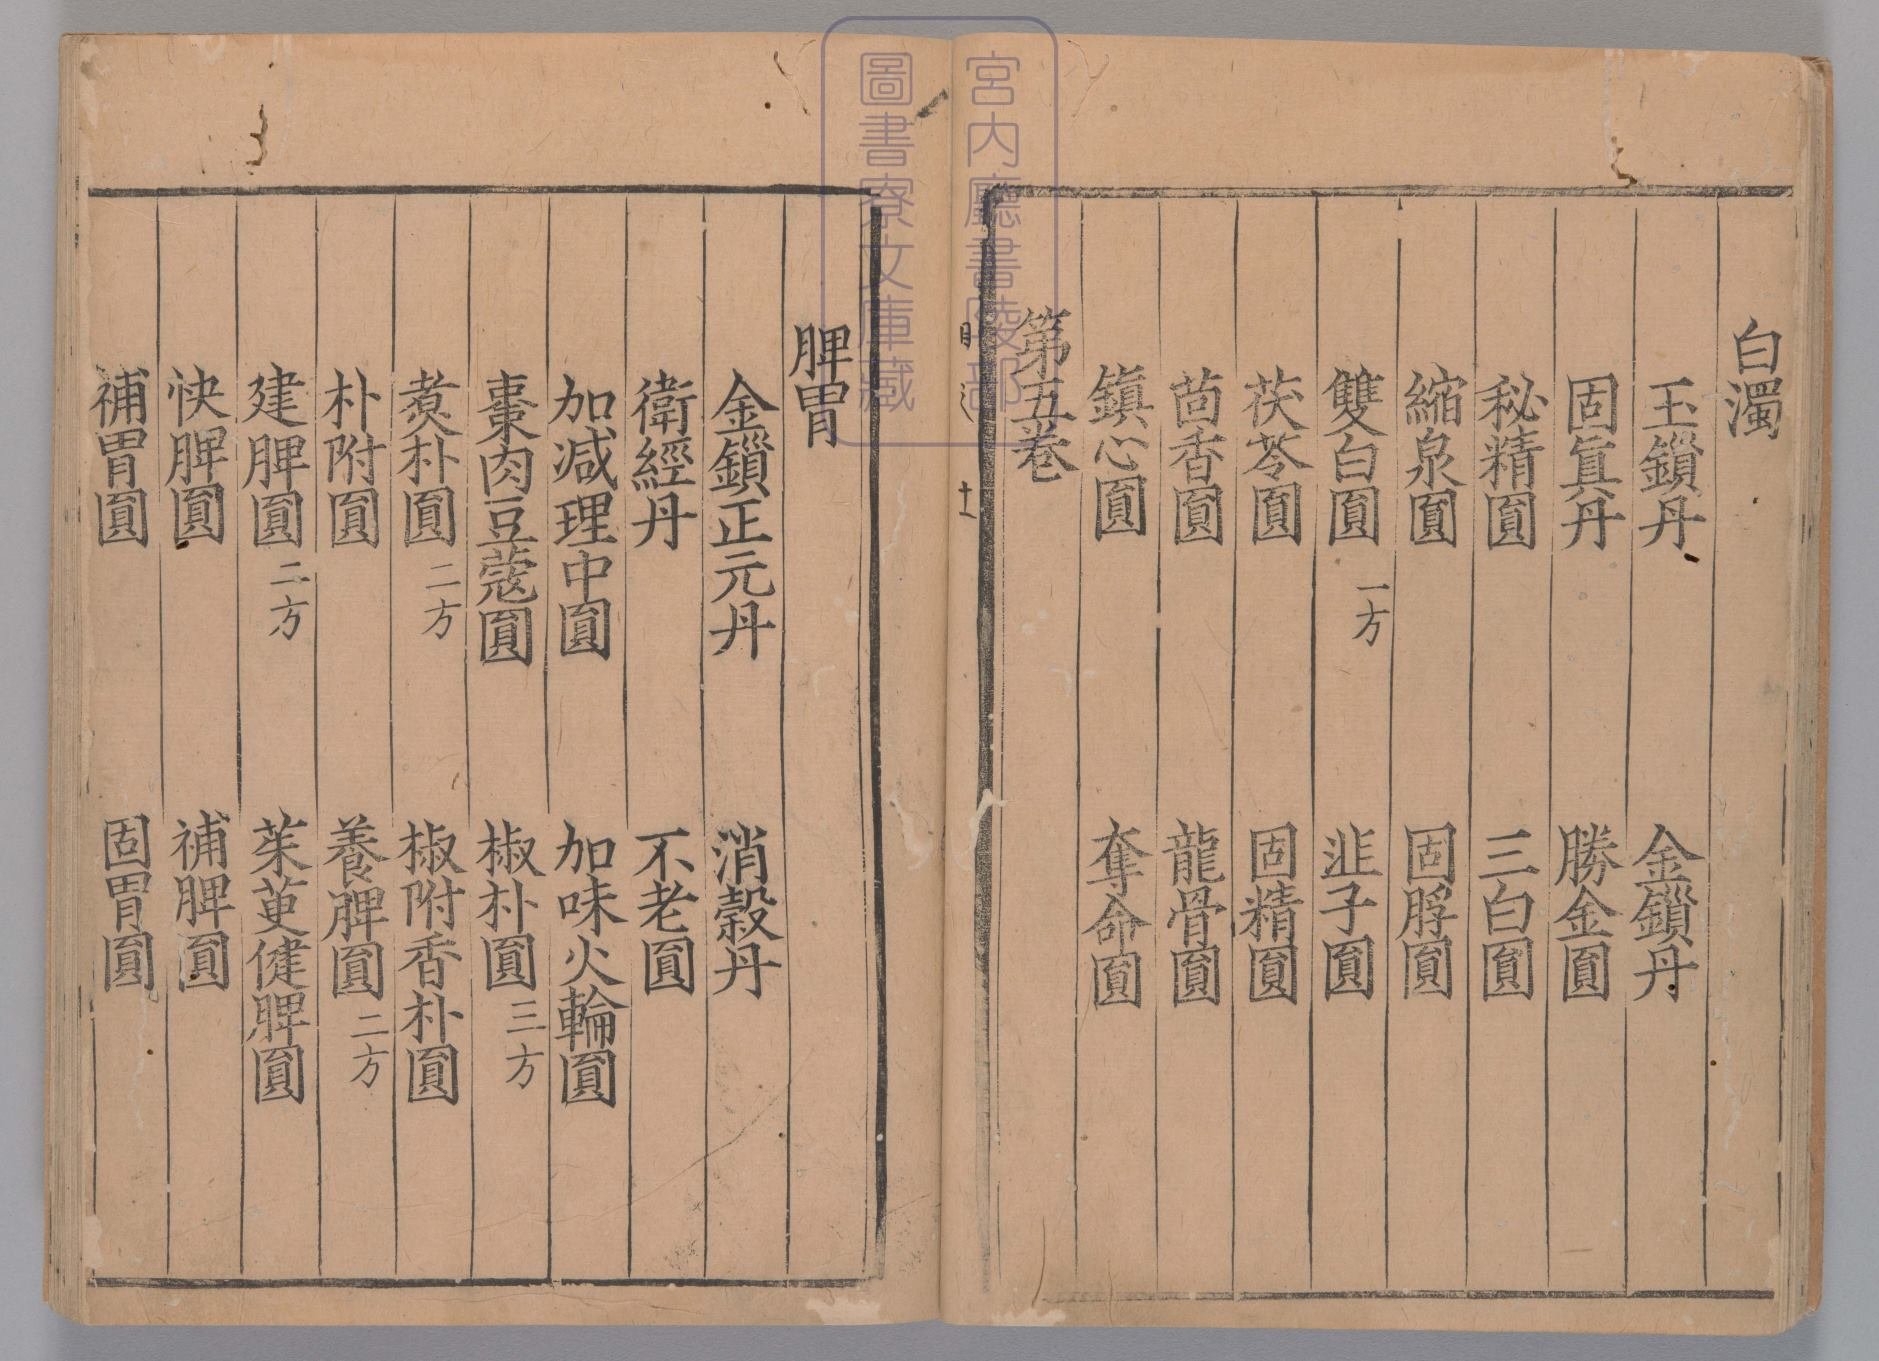 白濁
玉鎖丹　金鎖丹
固眞丹　勝金圓
秘精圓　三白圓
縮泉圓　固脬圓
雙白圓 一方　韭子圓
茯苓圓　固精圓
茴香圓　龍骨圓
鎮心圓　奪命圓
第五卷
脾胃
金鎖正元丹　消穀丹
衛經丹　不老圓
加減理中圓　加味火輪圓
棗肉豆蔻圓　椒朴圓 三方
煑朴圓 二方　椒附香朴圓
朴附圓　養脾圓 二方
建脾圓 二方　茱萸健脾圓
快脾圓　補脾圓
補胃圓　固胃圓
宮内廳書陵部
圖書寮文庫藏